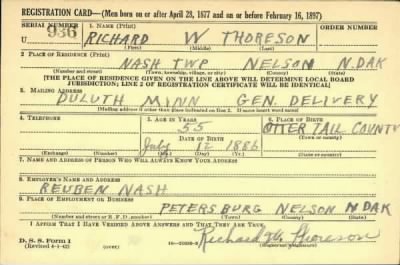 REGISTRATION CARD—(Men born on or after April 28, 1877 and on or before February 16, 1897)
SERIAL NUMBER 1. NAME (Print) ORDER NUMBER
U 936 RICHARD W THORESON
(First) (Middle) (Last)
2. PLACE OF RESIDENCE (Print)
NASH TWP NELSON N.DAK
(Number and street) (Town, township, village, or city) (County) (State)
[THE PLACE OF RESIDENCE GIVEN ON THE LINE ABOVE WILL DETERMINE LOCAL BOARD
JURISDICTION; LINE 2 OF REGISTRATION CERTIFICATE WILL BE IDENTICAL]
3. MAILING ADDRESS
DULUTH MINN GEN. DELIVERY
[Mailing address if other than place indicated on line 2. If same insert word same]
4. TELEPHONE 5. AGE IN YEARS 6. PLACE OF BIRTH
55 OTTER TAIL COUNTY
DATE OF BIRTH (Town or county)
July 12 1886
(Exchange) (Number) (Mo.) (Day) (Yr.) (State or country)
7. NAME AND ADDRESS OF PERSON WHO WILL ALWAYS KNOW YOUR ADDRESS
8. EMPLOYER'S NAME AND ADDRESS
REUBEN NASH
9. PLACE OF EMPLOYMENT OR BUSINESS
PETERSBURG NELSON N DAK
(Number and street or R. F. D. number) (Town) (County) (State)
I AFFIRM THAT I HAVE VERIFIED ABOVE ANSWERS AND THAT THEY ARE TRUE.
D. S. S. Form 1
(Revised 4-1-42) Richard W. Thoreson
(Registrant's signature)